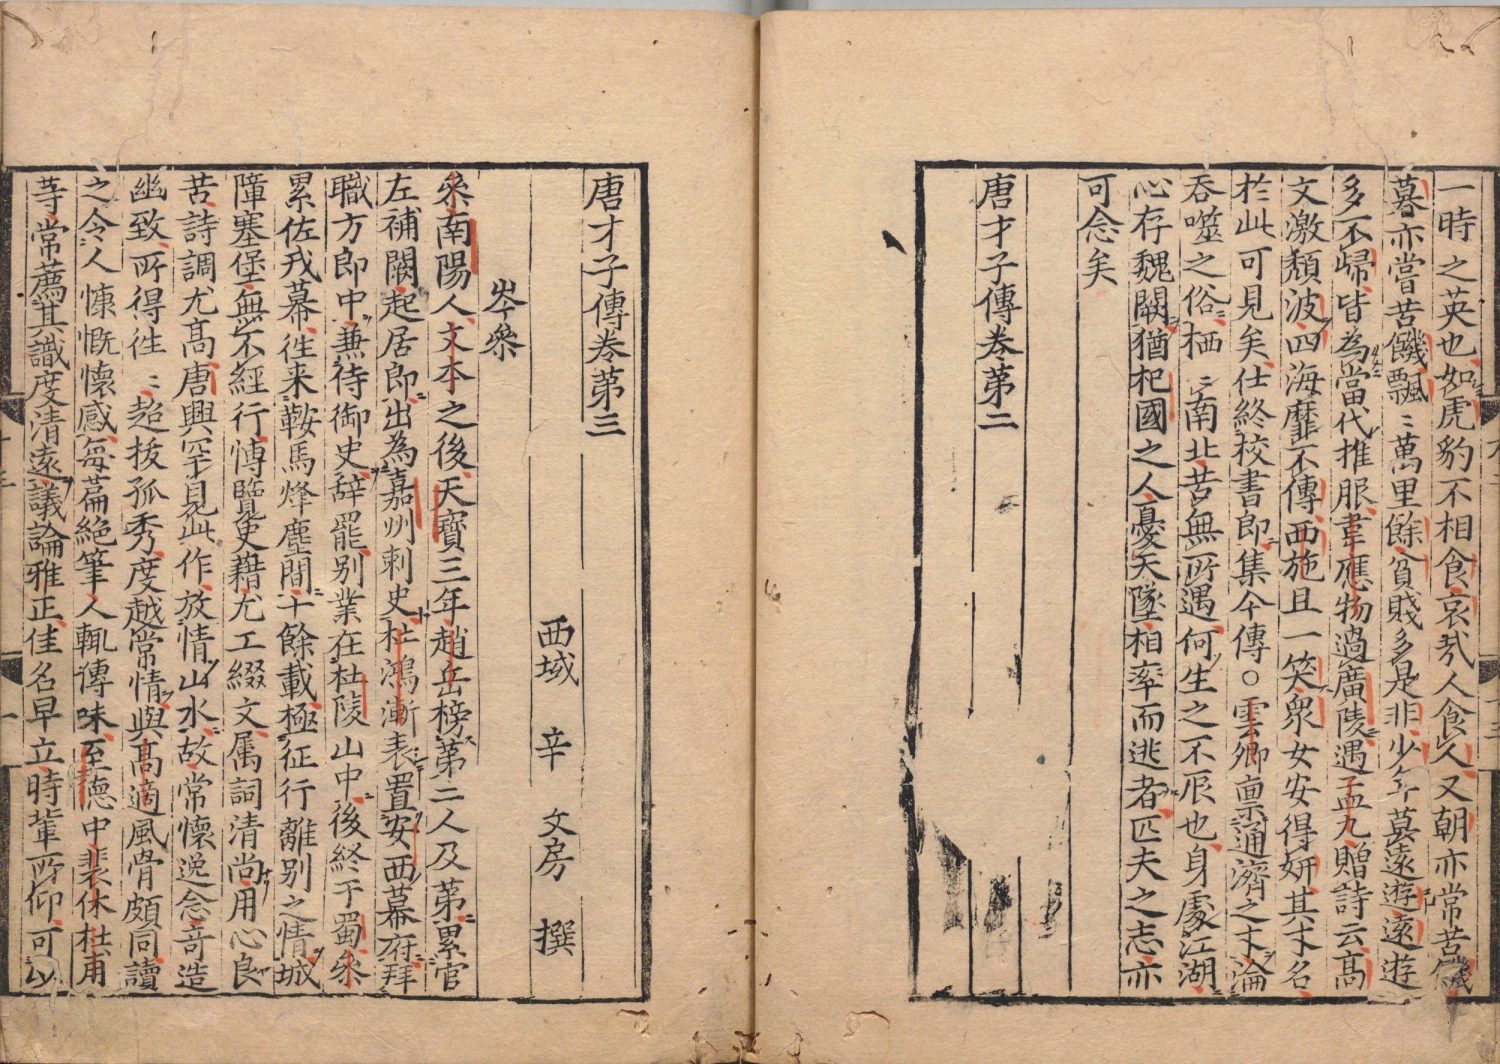 一時之英也如虎豹不相食哀哉人食人又朝亦常苦饑
暮亦嘗苦饑飄〻萬里餘貧賤多是非少年莫遠遊遠遊
多不歸皆為當代推服韋應物過廣陵遇孟九贈詩云高
文激頹波四海靡不傳西施且一笑衆女安得妍其才名
於此可見矣仕終校書郎集今傳○雲卿禀通濟之才淪
吞噬之俗栖〻南北苦無所遇何生之不辰也身處江湖
心存魏闕猶杞國之人憂天墜相率而逃者匹夫之志亦
可念矣
唐才子傳卷第二
唐才子傳卷第三
西域 辛 文房 撰
岑參
參南陽人文本之後天寶三年趙岳榜第二人及第累官
左補闕起居郎出為嘉州刺史杜鴻漸表置安西幕府拜
職方郎中兼侍御史辭罷别業在杜陵山中後終于蜀參
累佐戎幕徃来鞍馬烽塵間十餘載極征行離别之情城
障塞堡無不經行博覽史藉尤工綴文属詞清尚用心良
苦詩調尤髙唐興罕見此作放情山水故常懷逸念竒造
幽致所得徃〻超拔孤秀度越常情與髙適風骨頗同讀
之令人慷慨懷感每篇絶筆人輒傳味至德中裴休杜甫
等常薦其識度清遠議論雅正佳名早立時輩所仰可以